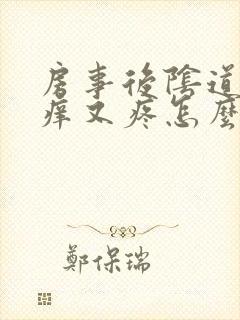 房事後陰道
癢又疼怎麼
鄭保瑞